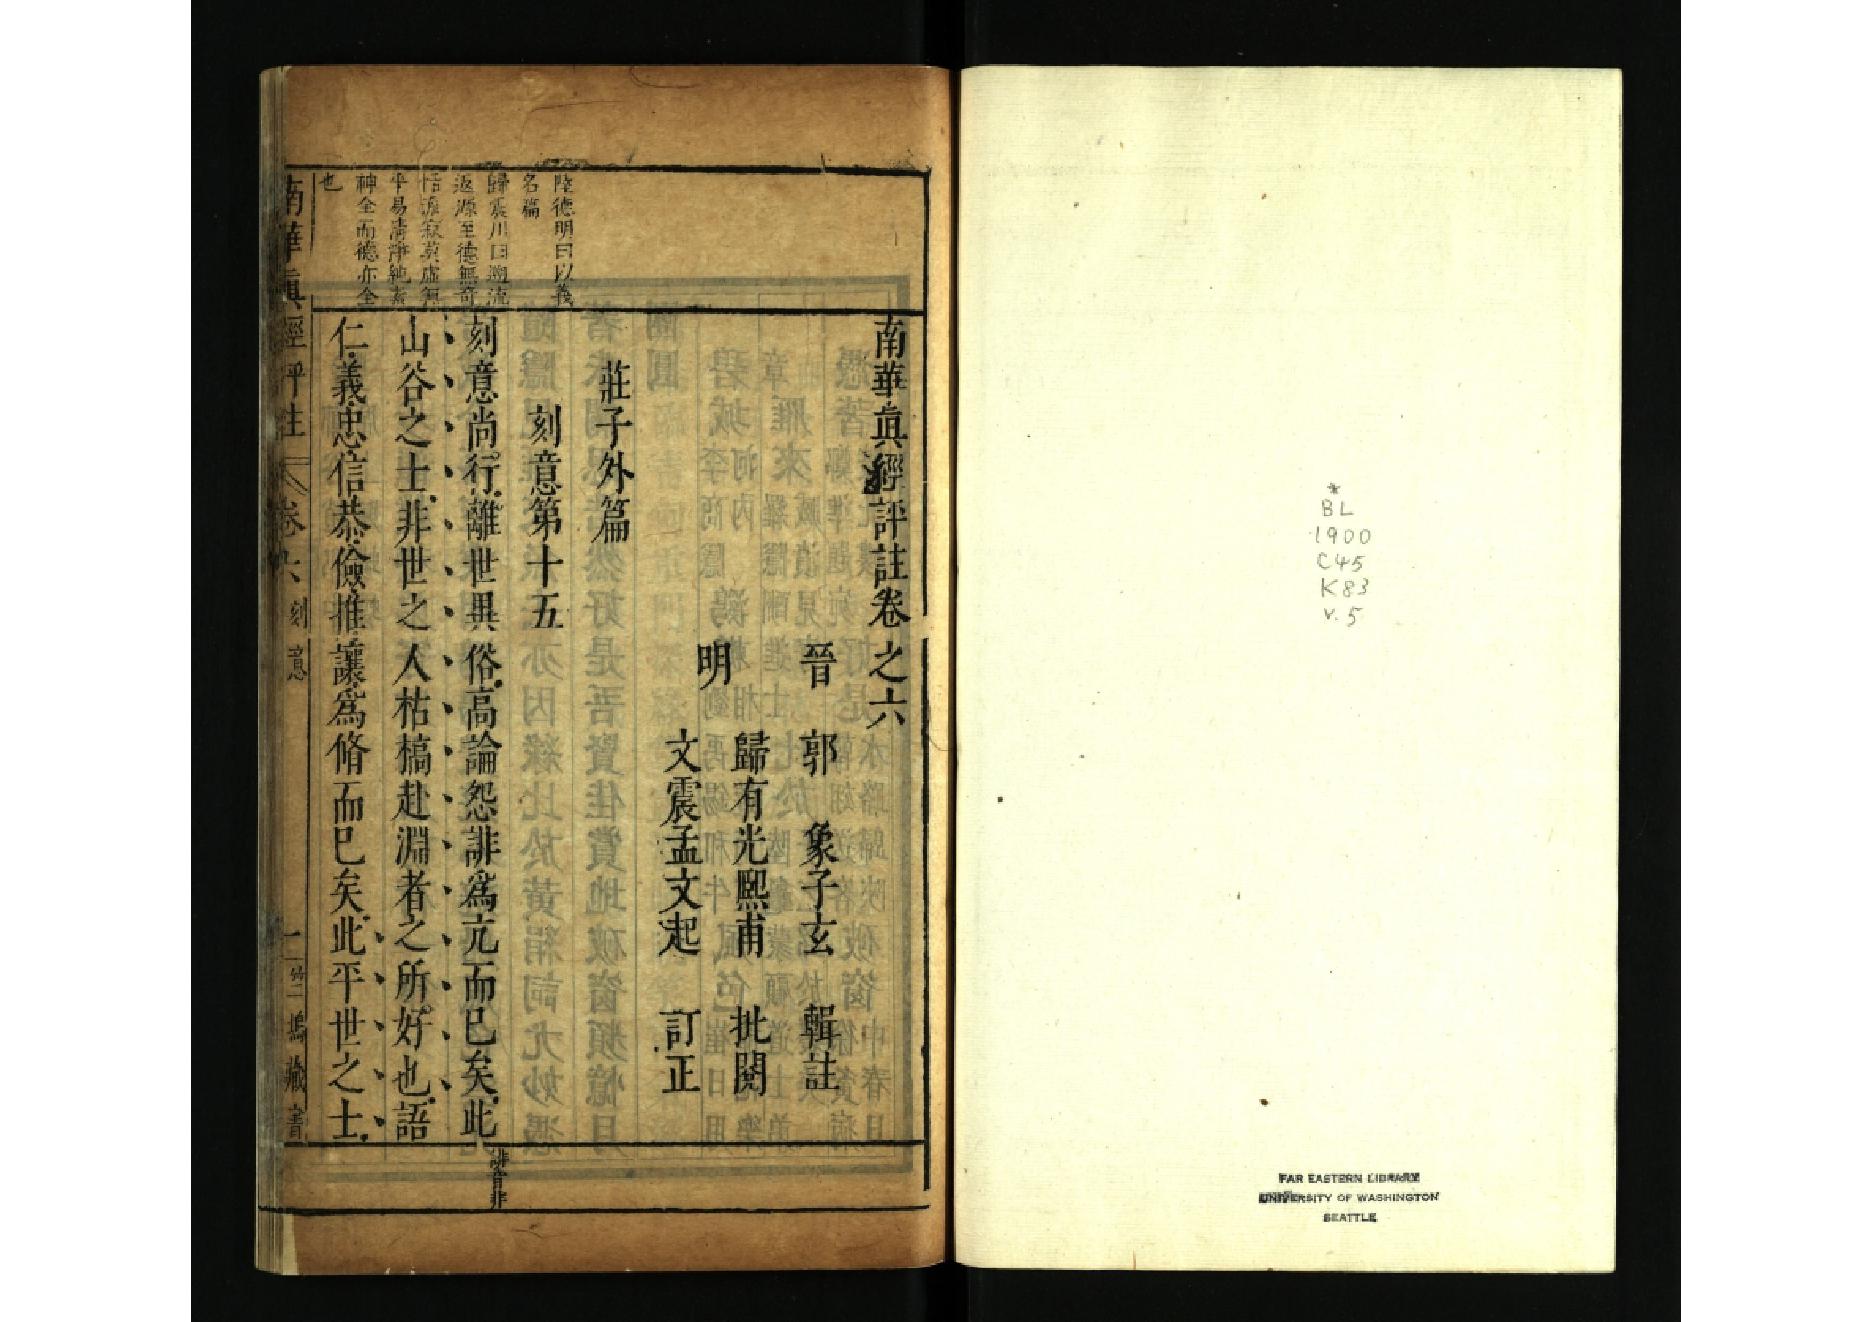 *
BL
1900
C45
K83
v.5
FAR EASTERN LIBRARY
UNIVERSITY OF WASHINGTON
SEATTLE
南華真經評註卷之六
晉 郭 象子玄 輯註
明 歸有光熙甫 批閱
文震孟文起 訂正
莊子外篇
刻意第十五
陸德明曰以義
名篇
歸震川曰遡流
返源至德無奇
恬淡寂莫虛無
平易清淨純素
神全而德亦全
也
刻意尚行離世異俗高論怨誹爲亢而已矣此
誹音非
山谷之士非世之人枯槁赴淵者之所好也語
仁義忠信恭儉推讓爲脩而已矣此平世之士
南華真經評註 卷六 刻意 一 竺塢藏書